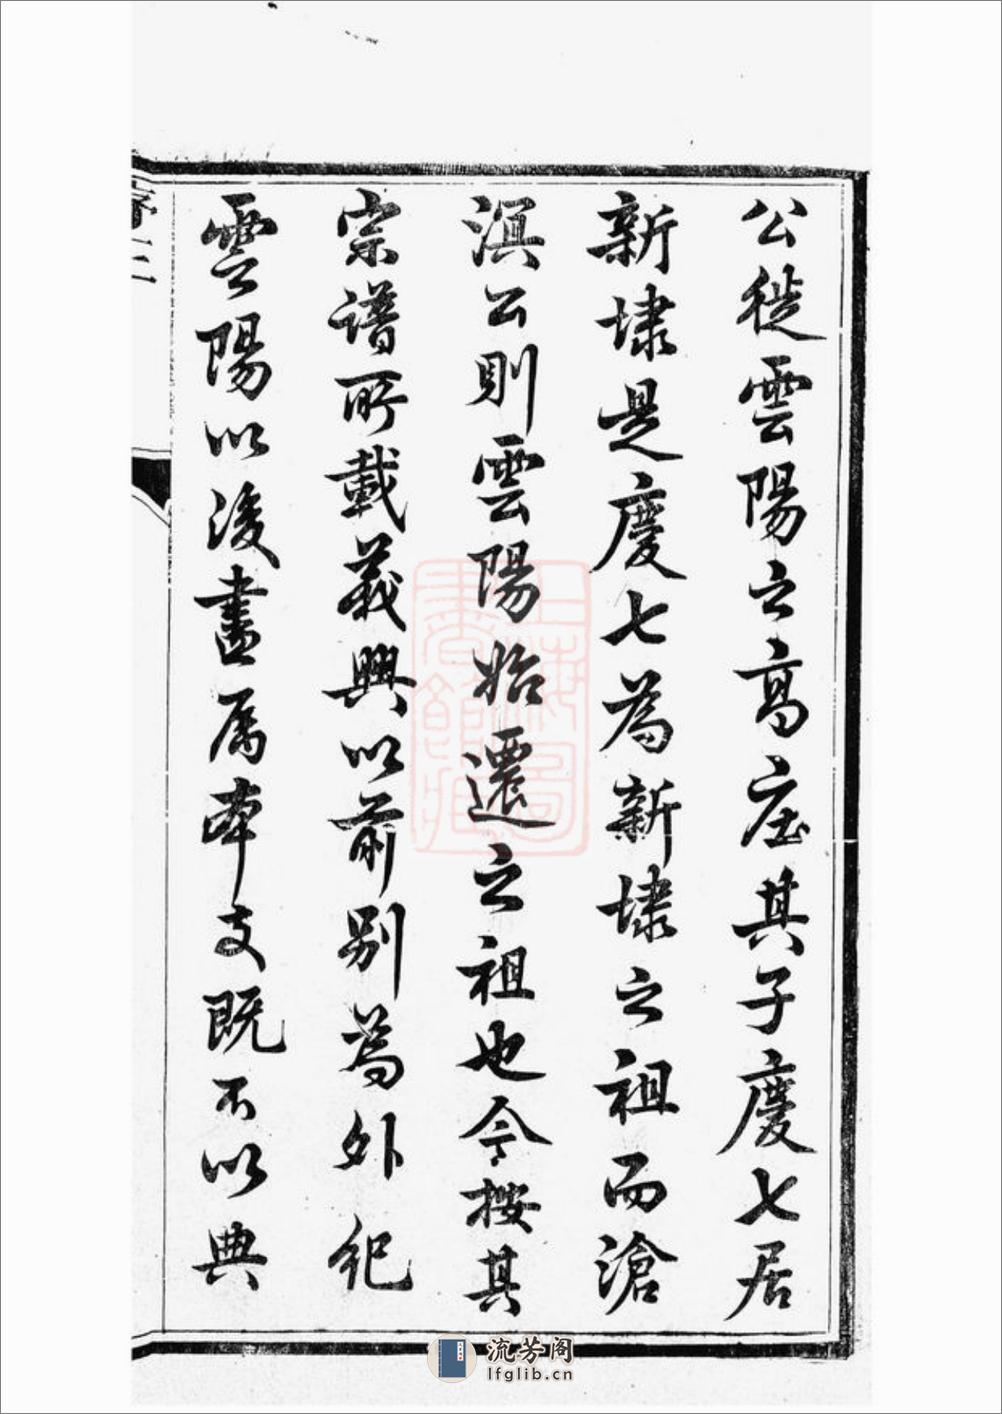 公徙雲陽之高庄其子慶七居
新埭是慶七為新埭之祖而滄
溟公則雲陽始遷之祖也今按其
宗譜所載義興以前别為外紀
雲陽以後盡属本支既不以典
序二
上海圖書館藏
流芳阁
lfglib.cn